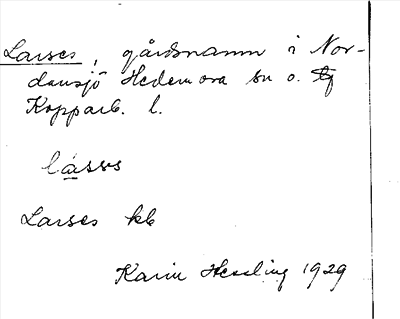 Larses, gårdsnamn i Nor-
dansjö Hedemora sn o.
Kopparb. l.
lásss
Larses kb
Karin Hessling 1929